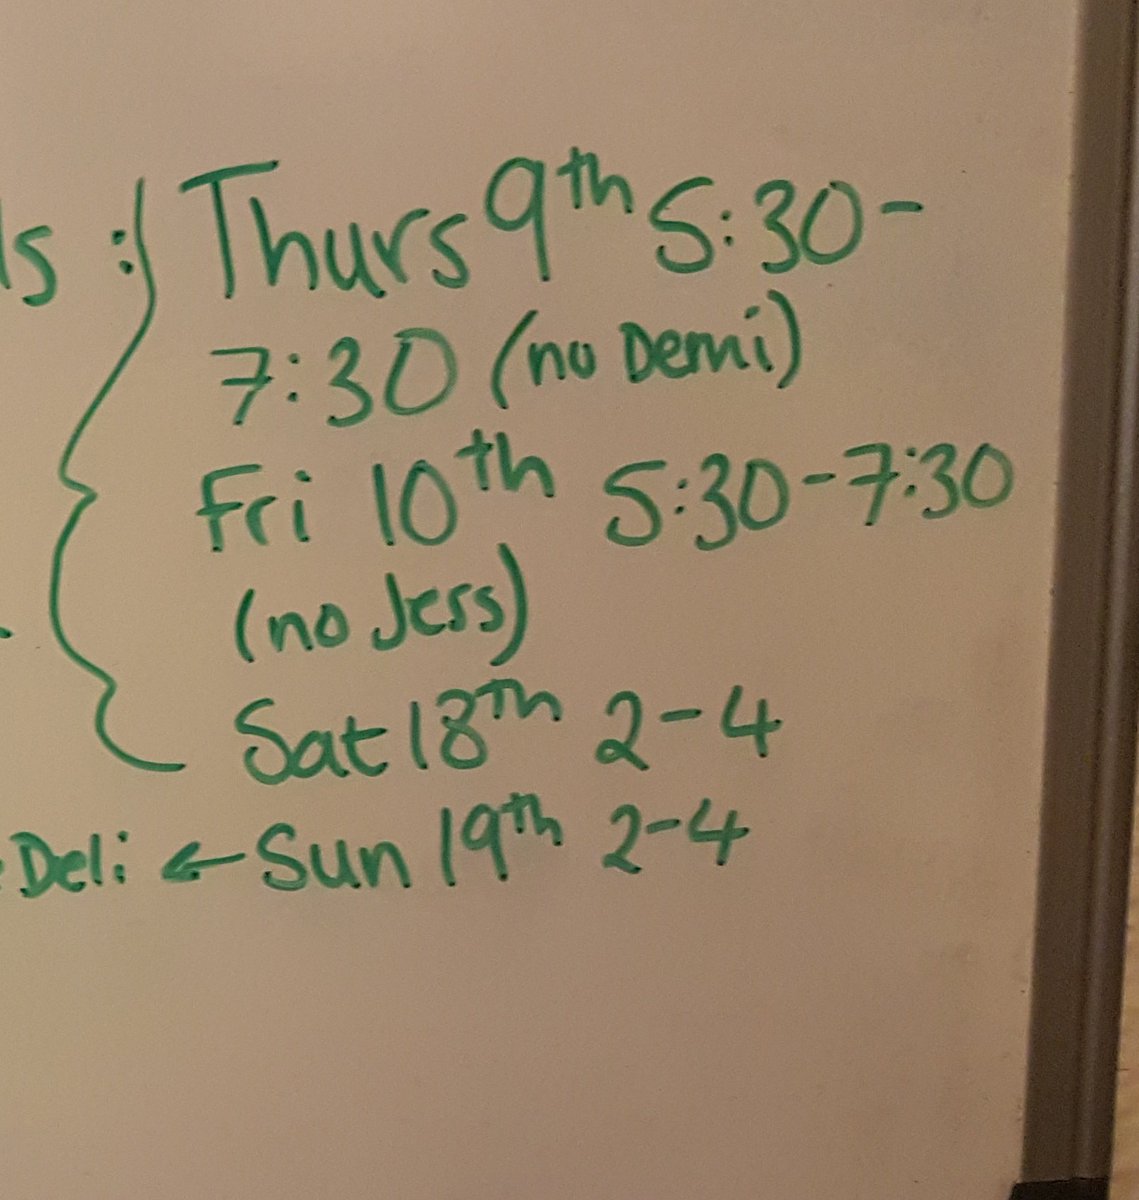 Thurs 9th 5:30-
7:30 (no Demi)
Fri 10th 5:30-7:30
(no Jess)
Sat 18th 2-4
Deli ← Sun 19th 2-4